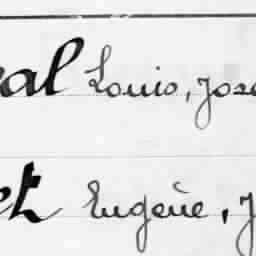 al Louis, Jos
et Eugène, J